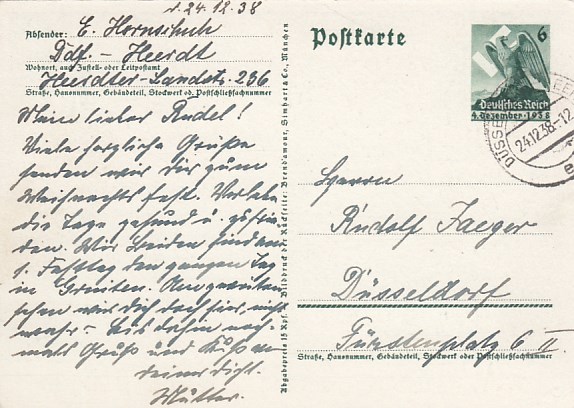 v. 24.12.38
Absender: E. Hornschuh
Ddf. - Heerdt
Wohnort, auch Zustell- oder Leitpostamt
Heerdter-Landstr. 236
Straße, Hausnummer, Gebäudeteil, Stockwerk od. Postschließfachnummer
Mein lieber Rudel!
Viele herzliche Grüße
senden wir dir zum
Weihnachtsfest. Verlebe
die Tage gesund u. zufrie
den. Wir beiden sind am
1. Festtag den ganzen Tag
in
sehen wir dich doch hier, nicht
wahr - bis dahin noch-
mals Gruß und Kuß von
deiner dich.
Mutter.
Abgabepreis 15 Rpf. Bilddruck der Rückseite: Brend'amour, Simhart & Co., München
Postkarte
6
Deutsches Reich
4. Dezember · 1938
DÜSSE
24.12.38-12
e
Herrn
Rudolf Jaeger
Düsseldorf
Fürstenplatz 6 II
Straße, Hausnummer, Gebäudeteil, Stockwerk oder Postschließfachnummer